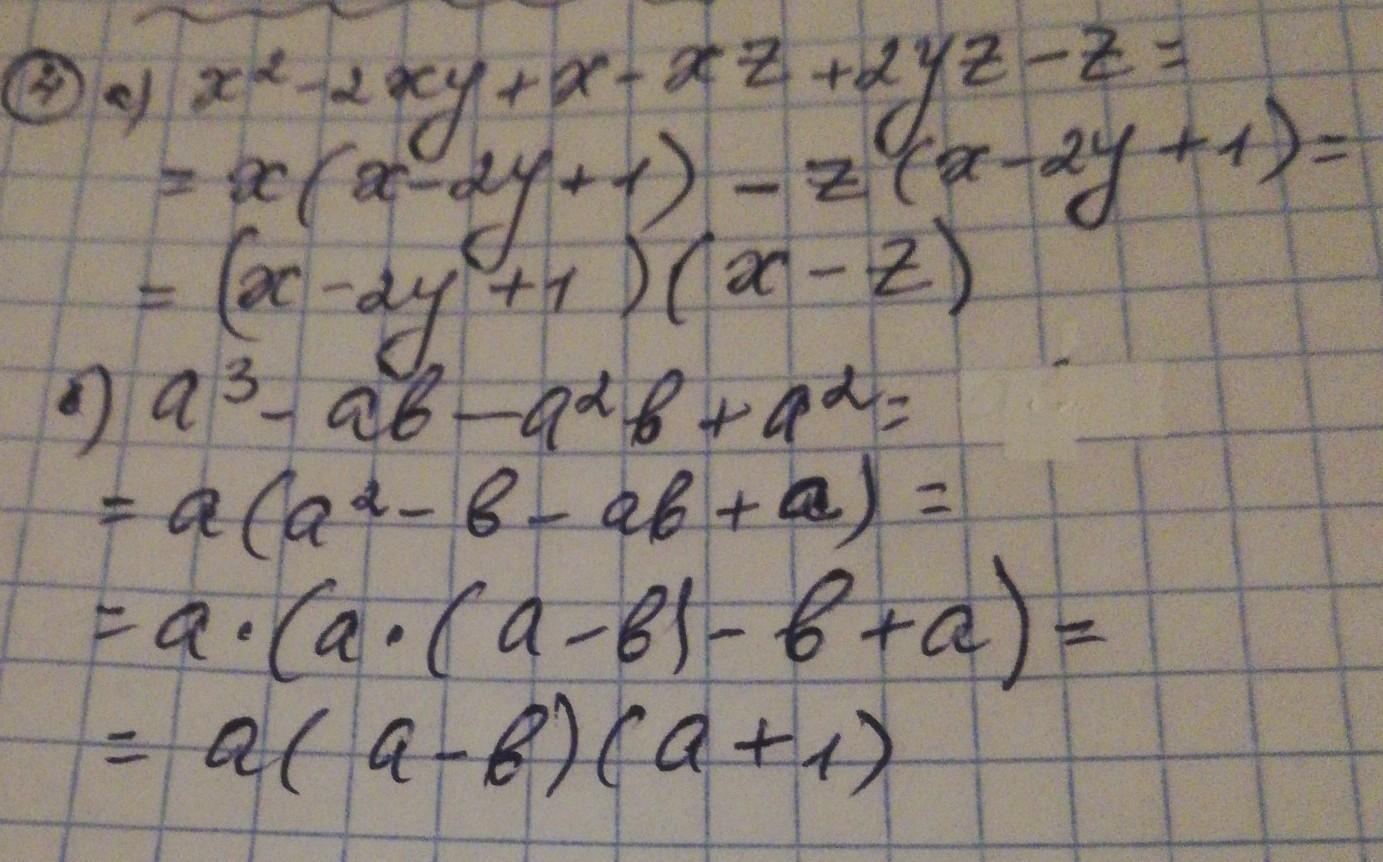 ④ а) x² - 2xy + x - xz + 2yz - z =
= x(x - 2y + 1) - z(x - 2y + 1) =
= (x - 2y + 1)(x - z)
б) a³ - ab - a²b + a² =
= a(a² - b - ab + a) =
= a·(a·(a - b) - b + a) =
= a(a - b)(a + 1)